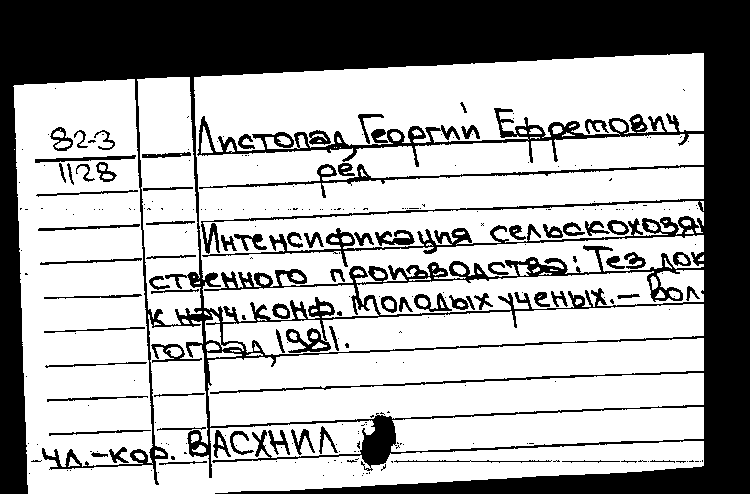 82-3
1128
Листопад, Георгий Ефремович,
ред.
Интенсификация сельскохозяй
ственного производства: Тез. док
к науч. конф. молодых ученых. — Вол-
гоград, 1981.
чл.-кор. ВАСХНИЛ